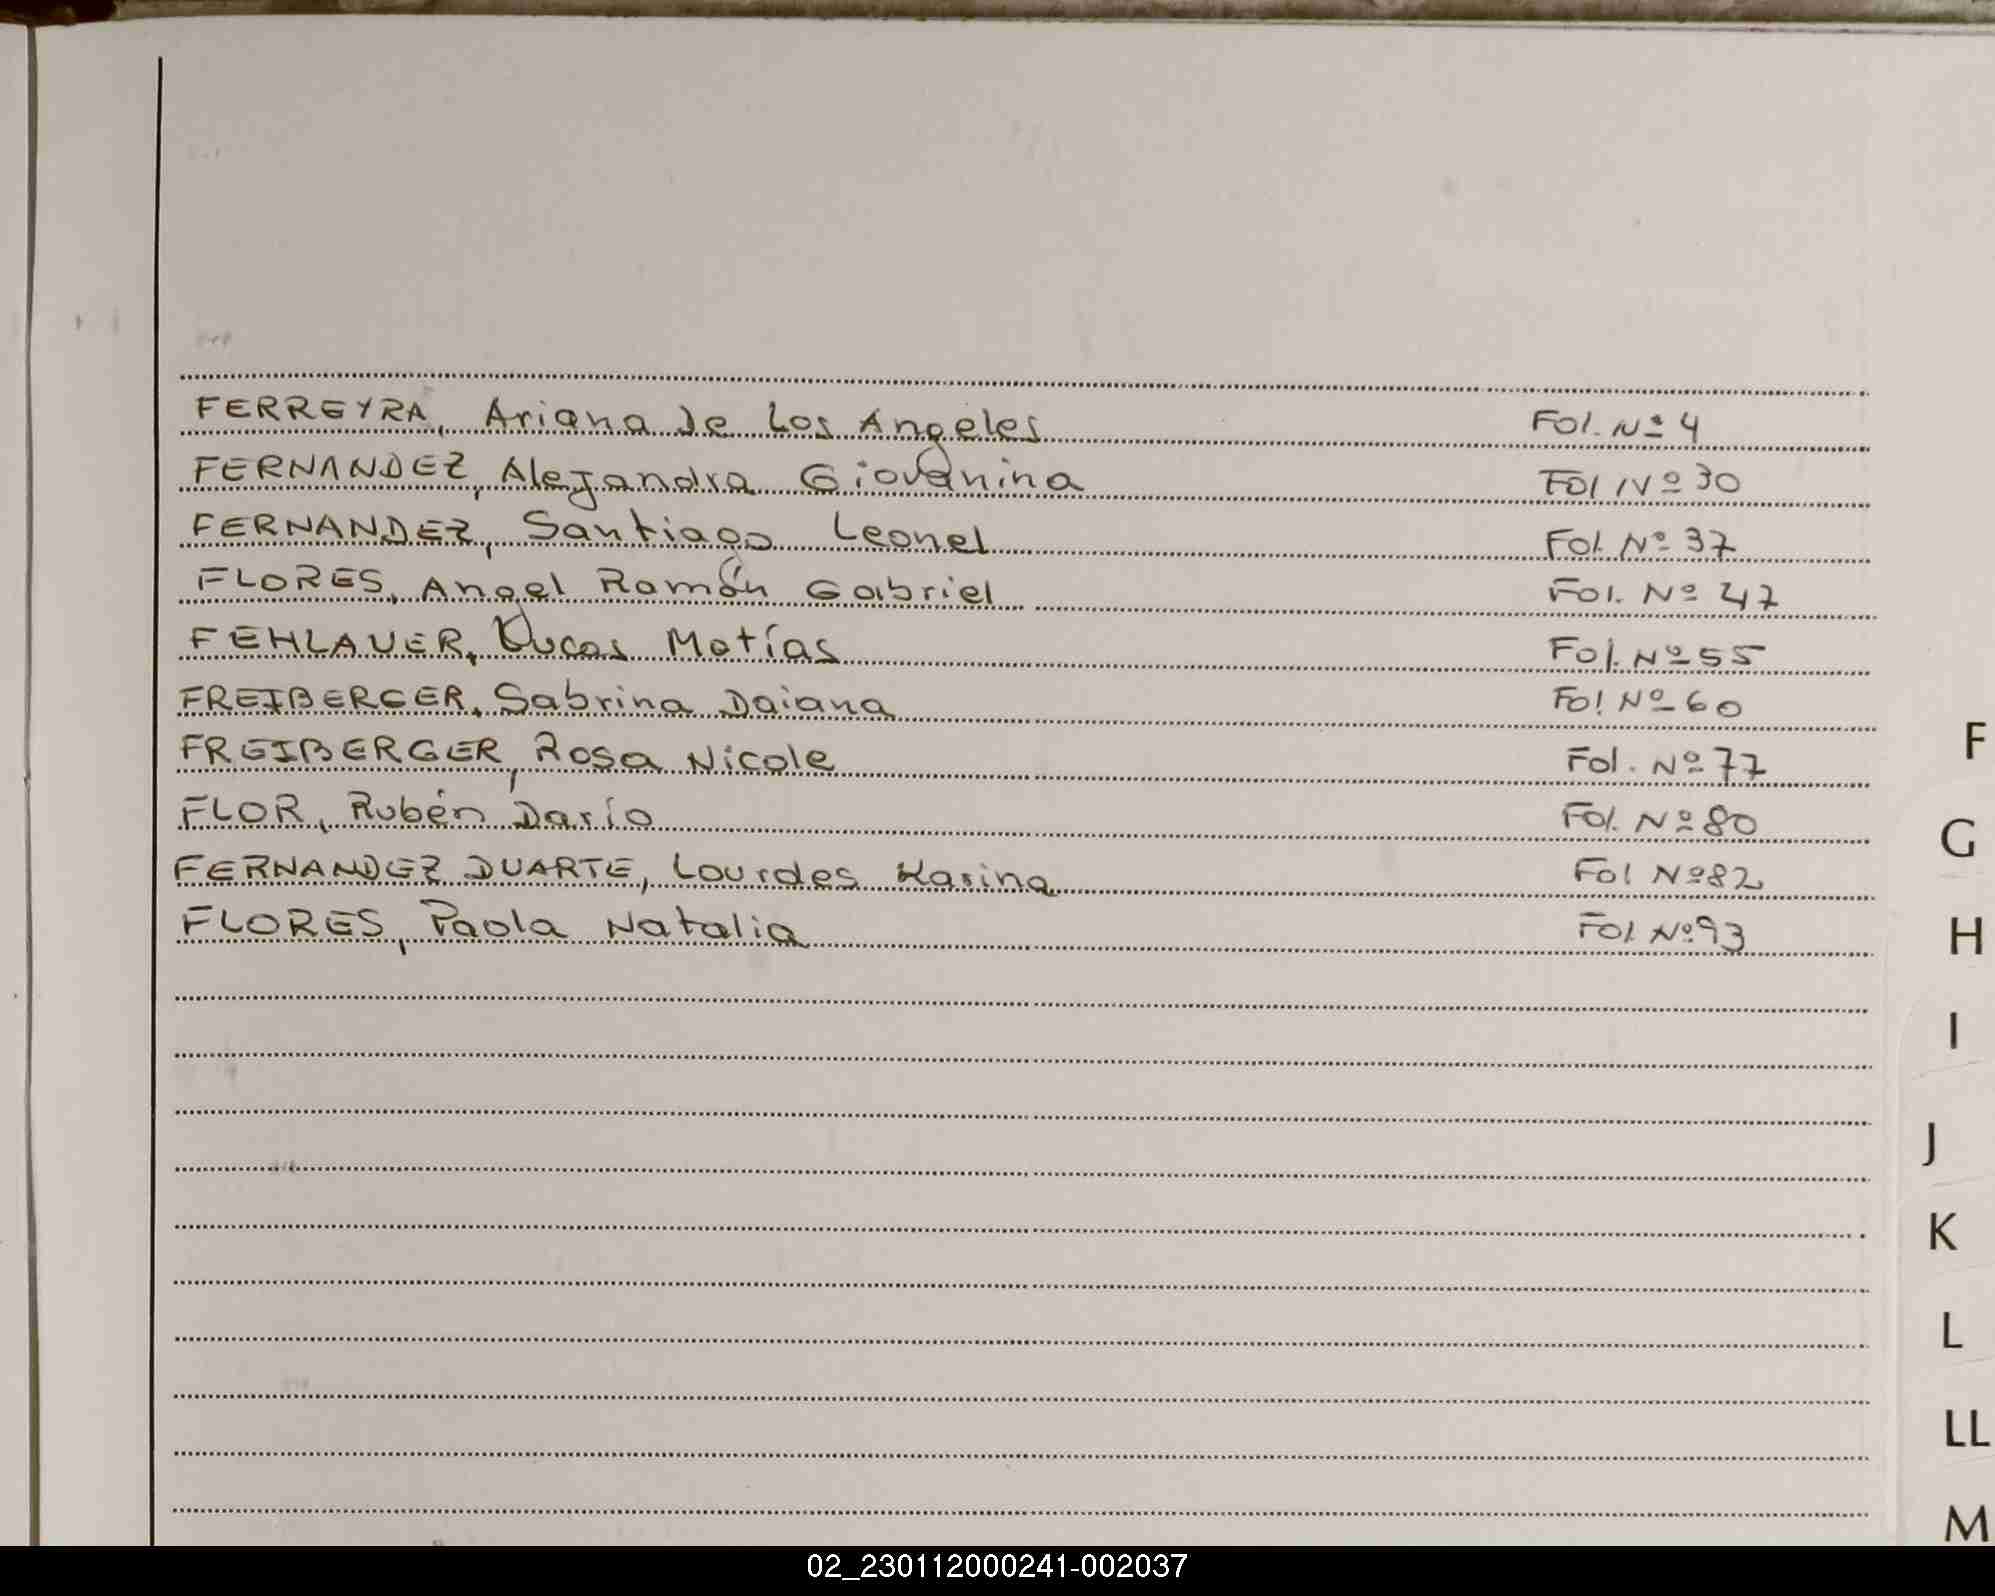 FERREYRA, Ariana de Los Angeles Fol. Nº 4
FERNANDEZ, Alejandra Giovanina Fol Nº 30
FERNANDEZ, Santiago Leonel Fol. Nº 37
FLORES, Angel Ramón Gabriel Fol. Nº 47
FEHLAUER, Lucas Matías Fol. Nº 55
FREIBERGER, Sabrina Daiana Fol Nº 60
FREIBERGER, Rosa Nicole Fol. Nº 77
FLOR, Rubén Darío Fol. Nº 80
FERNANDEZ DUARTE, Lourdes Karina Fol Nº 82
FLORES, Paola Natalia Fol. Nº 93
F
G
H
I
J
K
L
LL
M
02_230112000241-002037